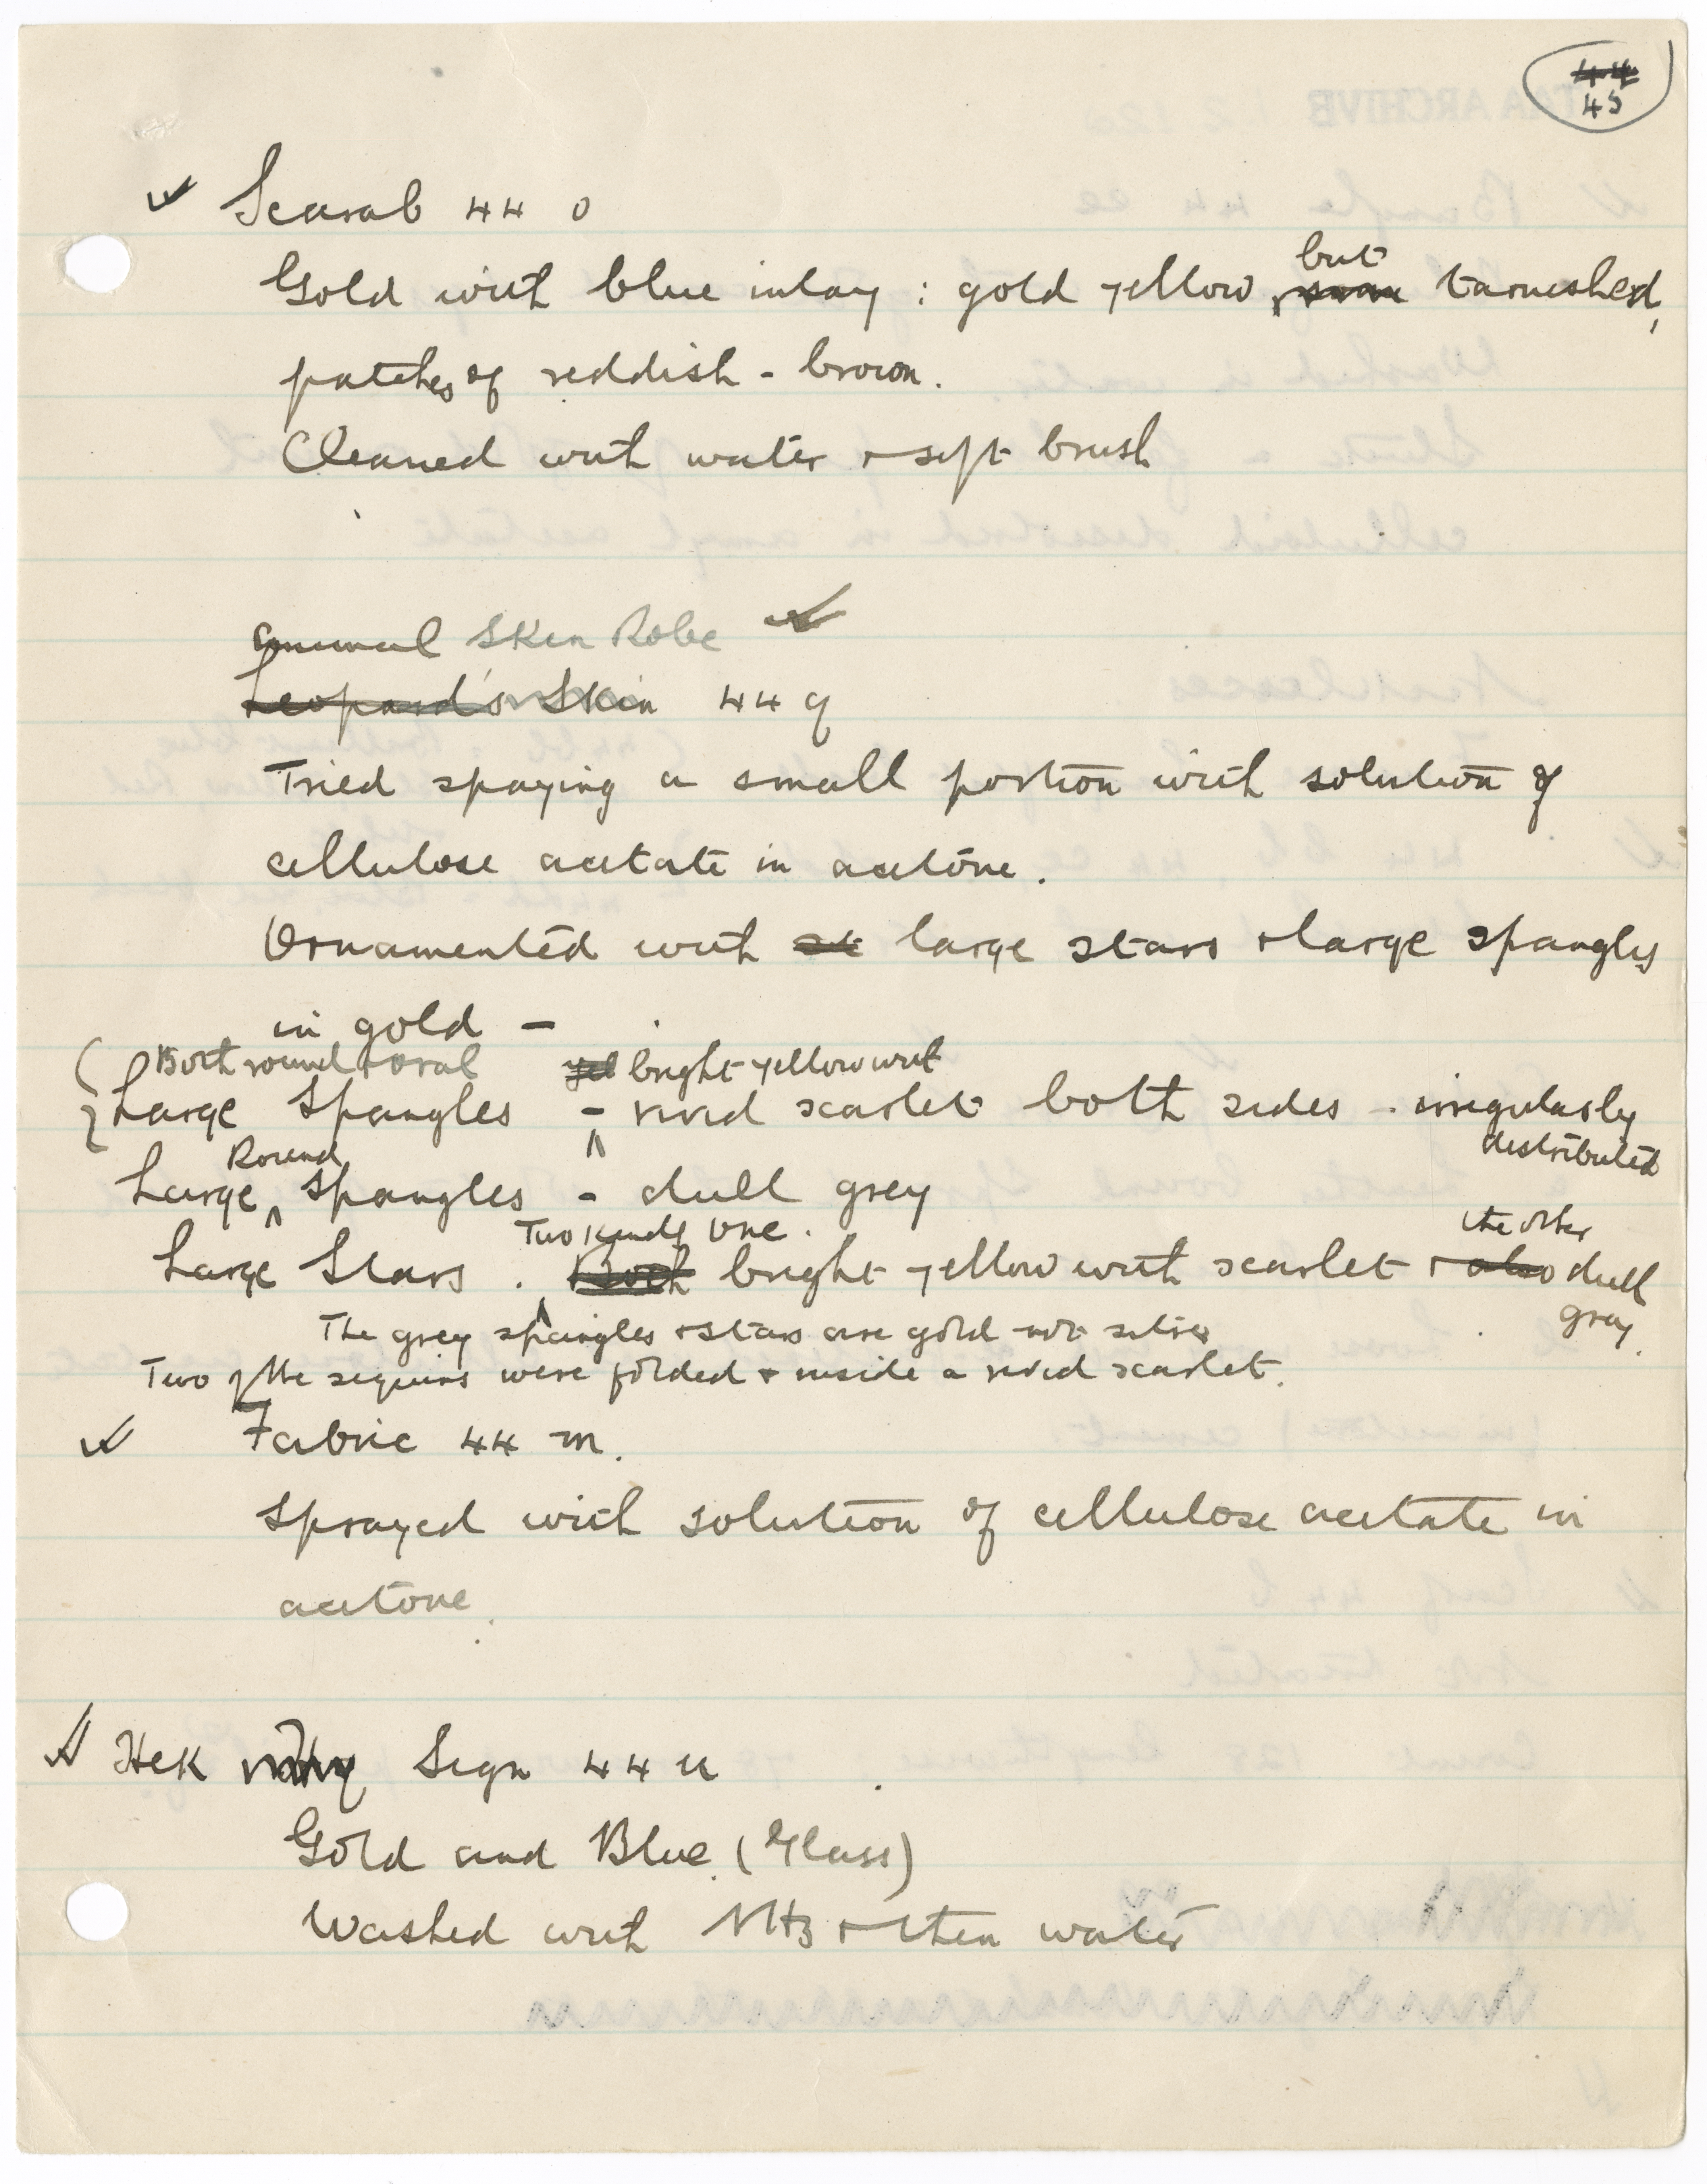 44
45
Scarab 44 o
but
Gold with blue inlay : gold yellow, tarnished,
patches of reddish - brown.
Cleaned with water + soft brush
Animal Skin Robe
Leopard's Skin 44 q
Tried spaying a small portion with solution of
cellulose acetate in acetone.
Ornamented with st large stars + large spangles
in gold -
Both round + oval yel bright yellow with
Large Spangles - vivid scarlet both sides - irregularly
distributed
Round
Large Spangles - dull grey
Two kinds one the other
Large Stars . Both bright yellow with scarlet + also dull
grey.
The grey spangles + stars are gold not silver
Two of the sequins were folded + inside a vivid scarlet.
Fabric 44 m.
Sprayed with solution of cellulose acetate in
acetone.
Hek Sign 44 u
Gold and Blue (Glass)
Washed with NH3 + then water